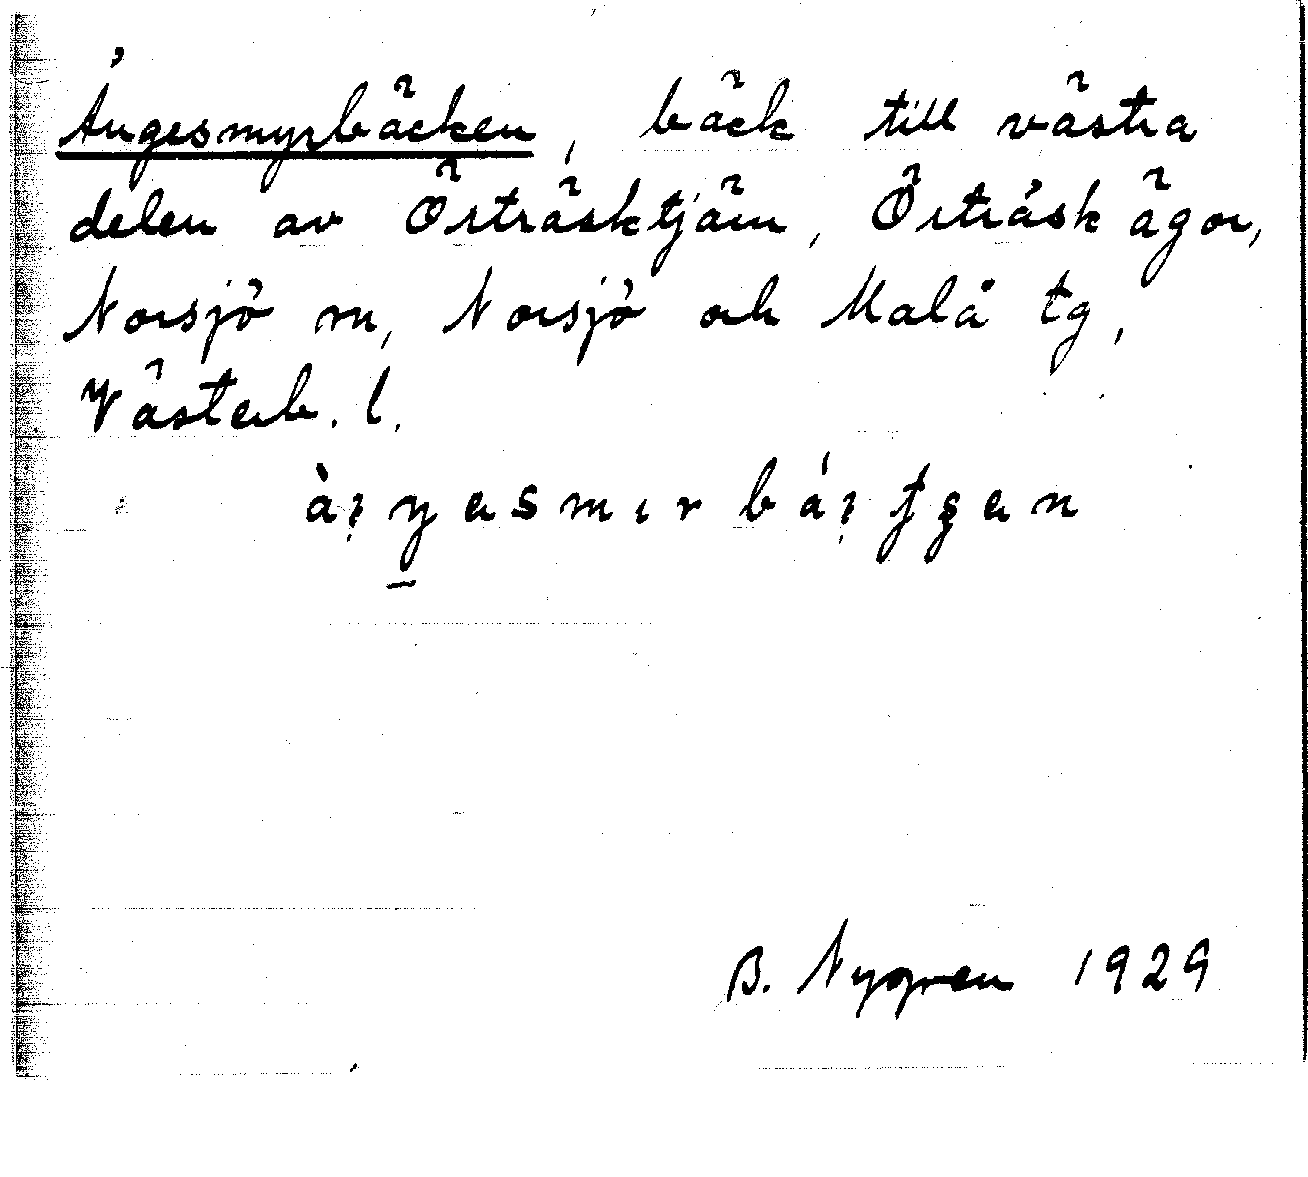 Ängesmyrbäcken, bäck till västra
delen av Örträsktjärn, Örträsk ägor,
Norsjö sn, Norsjö och Malå tg,
Västerb. l.
B. Nygren 1929